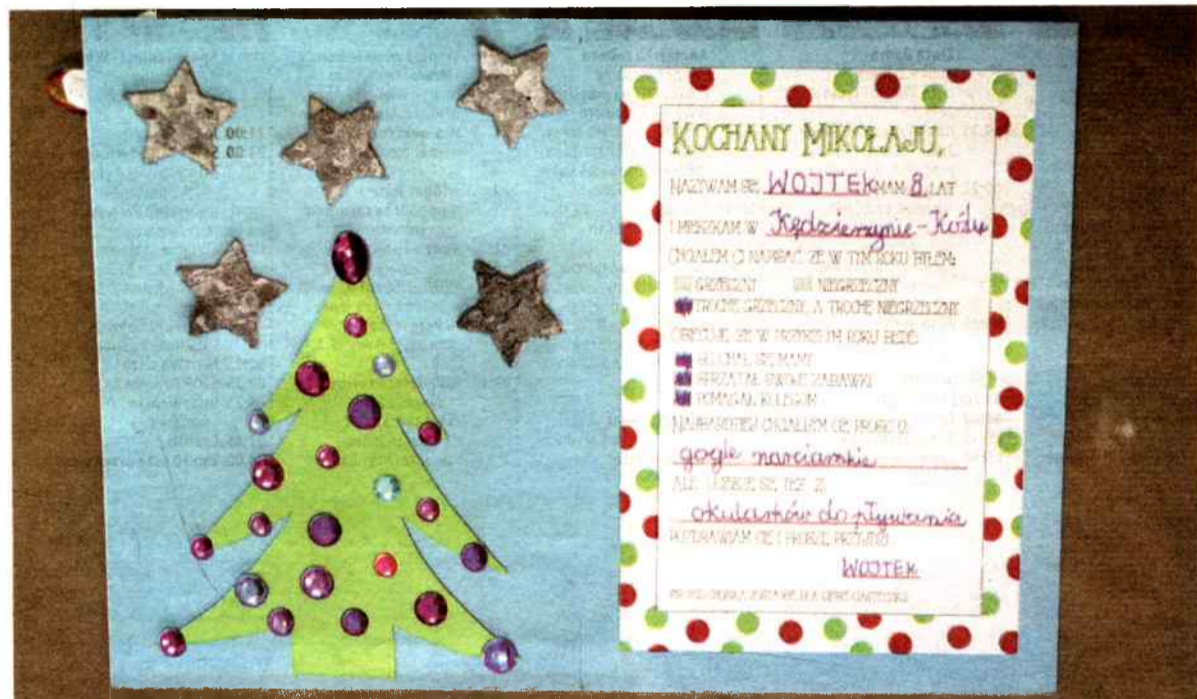 KOCHANY MIKOŁAJU,
NAZYWAM SIĘ WOJTEK MAM 8 LAT
I MIESZKAM W Kędzierzynie-Koźlu
CHCIAŁEM CI NAPISAĆ, ŻE W TYM ROKU BYŁEM:
GRZECZNY NIEGRZECZNY
TROCHĘ GRZECZNY, A TROCHĘ NIEGRZECZNY
OBIECUJĘ, ŻE W PRZYSZŁYM ROKU BĘDĘ:
SŁUCHAŁ SIĘ MAMY
SPRZĄTAŁ SWOJE ZABAWKI
POMAGAŁ KOLEGOM
NAJBARDZIEJ CHCIAŁBYM CIĘ PROSIĆ O:
gogle narciarskie
ALE UCIESZĘ SIĘ TEŻ Z:
okularków do pływania
POZDRAWIAM CIĘ I PROSZĘ, PRZYJDŹ!
WOJTEK